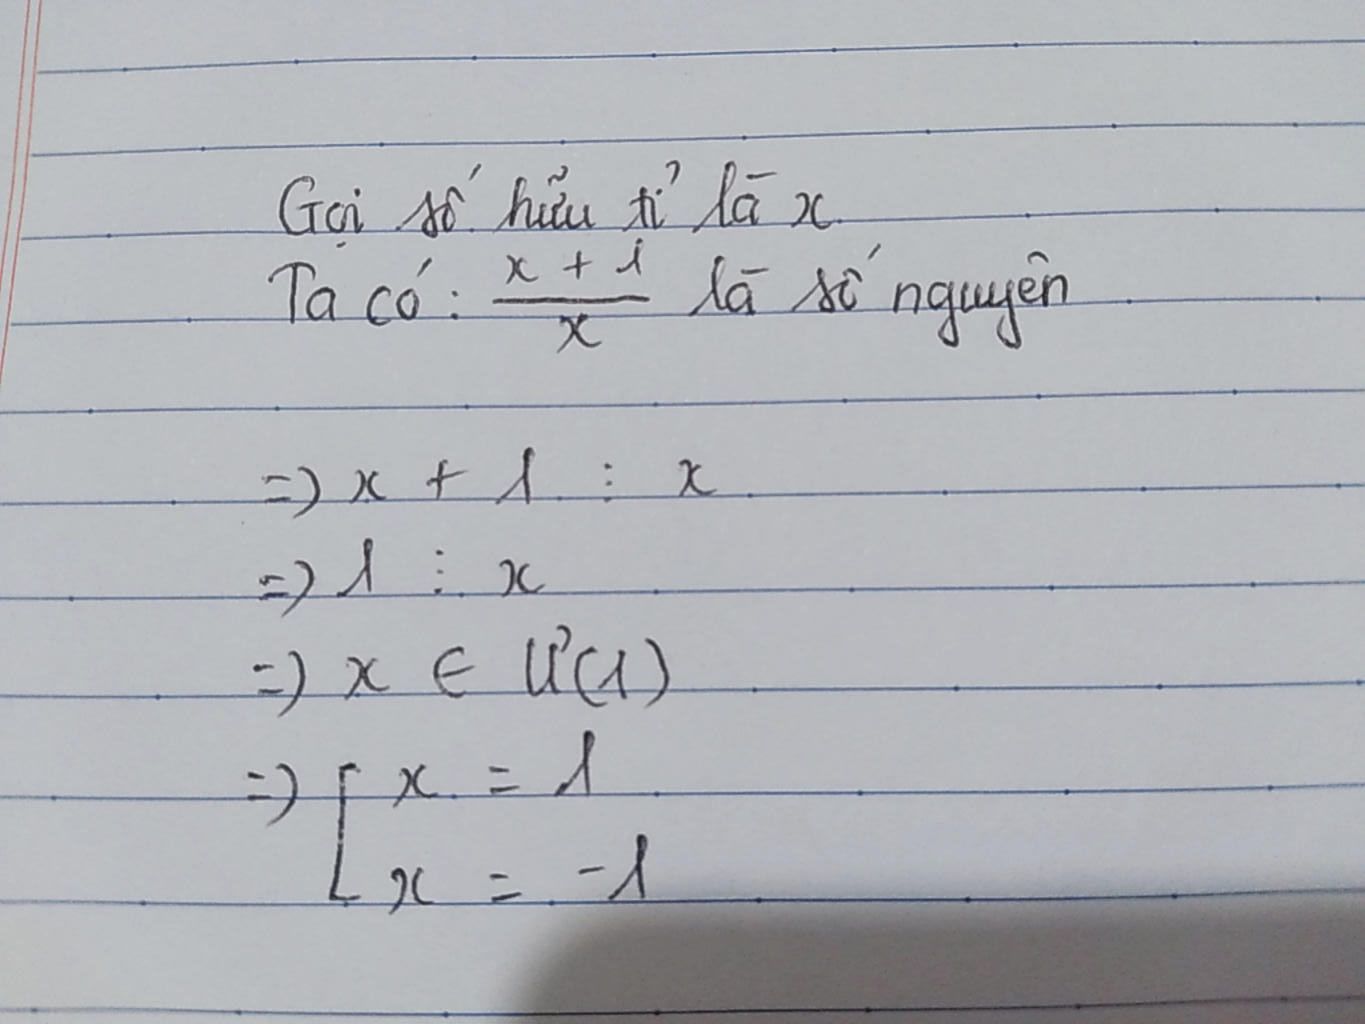 Gọi số hữu tỉ là x.
Ta có: \frac{x + 1}{x} là số nguyên
=> x + 1 ⋮ x
=> 1 ⋮ x
=> x ∈ Ư(1)
=> [ x = 1
x = -1